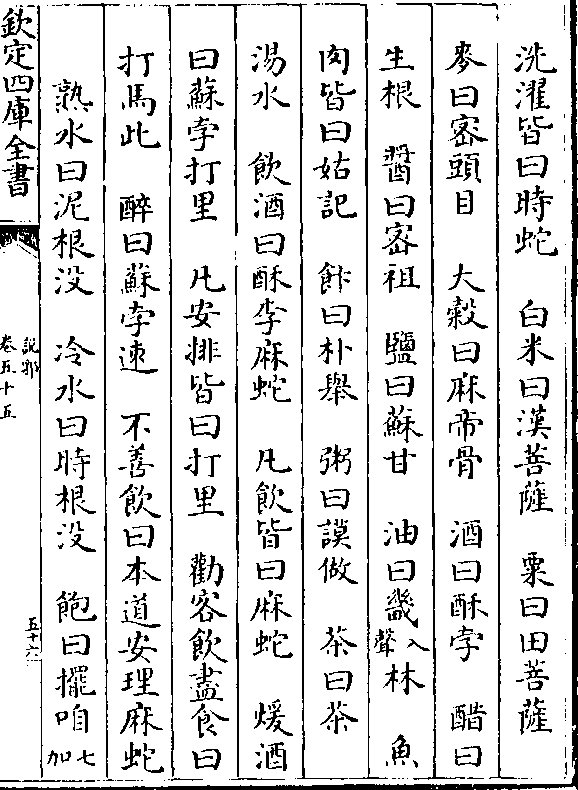 洗濯皆曰時蛇　白米曰漢菩薩　粟曰田菩薩
麥曰宻頭目　大穀曰麻帝骨　酒曰酥孛　醋曰
生根　醬曰宻祖　鹽曰蘇甘　油曰畿入聲林　魚
肉皆曰姑記　飰曰朴舉　粥曰謨做　茶曰茶
湯水　飲酒曰酥孛麻蛇　凡飲皆曰麻蛇　煖酒
曰蘇孛打里　凡安排皆曰打里　勸客飲盡食曰
打馬此　醉曰蘇孛速　不善飲曰本道安理麻蛇
熟水曰泥根没　冷水曰時根没　飽曰擺咱七加
欽定四庫全書
說郛
卷五十五
五十六